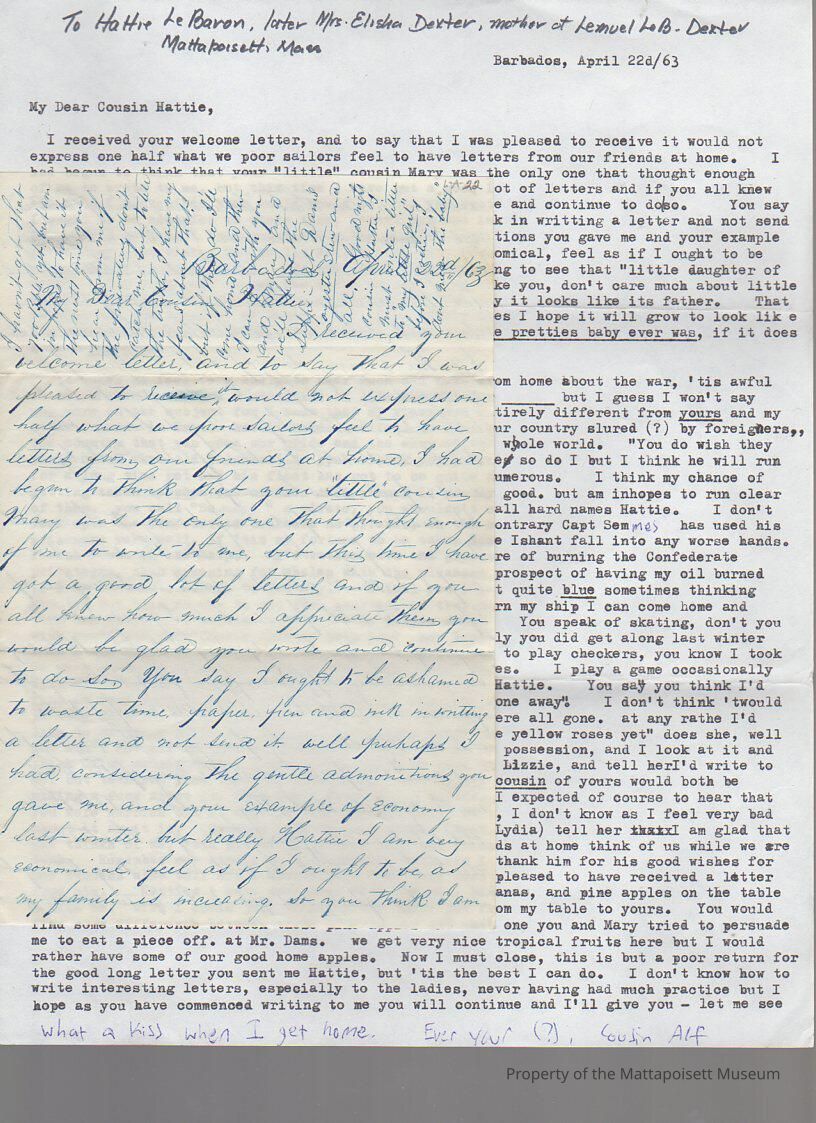 To Hattie LeBaron, later Mrs. Elisha Dexter, mother of Lemuel LeB. Dexter
Mattapoisett, Mass
Barbados, April 22d/63
My Dear Cousin Hattie,
I received your welcome letter, and to say that I was pleased to receive it would not
express one half what we poor sailors feel to have letters from our friends at home. I
had begun to think that your "little" cousin Mary was the only one that thought enough
ot of letters and if you all knew
e and continue to do so. You say
k in writting a letter and not send
tions you gave me and your example
omical, feel as if I ought to be
ng to see that "little daughter of
ke you, don't care much about little
y it looks like its father. That
es I hope it will grow to look lik e
e pretties baby ever was, if it does
om home about the war, 'tis awful
but I guess I won't say
tirely different from yours and my
ur country slured (?) by foreigners,,
whole world. "You do wish they
e so do I but I think he will run
umerous. I think my chance of
good. but am inhopes to run clear
all hard names Hattie. I don't
ontrary Capt Semmes has used his
e Ishant fall into any worse hands.
re of burning the Confederate
prospect of having my oil burned
t quite blue sometimes thinking
rn my ship I can come home and
You speak of skating, don't you
ly you did get along last winter
to play checkers, you know I took
es. I play a game occasionally
Hattie. You say you think I'd
one away". I don't think 'twould
ere all gone. at any rathe I'd
e yellow roses yet" does she, well
possession, and I look at it and
Lizzie, and tell herI'd write to
cousin of yours would both be
I expected of course to hear that
, I don't know as I feel very bad
Lydia) tell her I am glad that
ds at home think of us while we are
thank him for his good wishes for
pleased to have received a letter
anas, and pine apples on the table
om my table to yours. You would
find some difference between these pine
one you and Mary tried to persuade
me to eat a piece off. at Mr. Dams. we get very nice tropical fruits here but I would
rather have some of our good home apples. Now I must close, this is but a poor return for
the good long letter you sent me Hattie, but 'tis the best I can do. I don't know how to
write interesting letters, especially to the ladies, never having had much practice but I
hope as you have commenced writing to me you will continue and I'll give you - let me see
what a kiss when I get home. Ever your (?), Cousin Alf
A-22
Barbados April 22d/63
My Dear Cousin Hattie
I received your
welcome letter, and to say that I was
pleased to receive it would not express one
half what we poor sailors feel to have
letters from our friends at home, I had
begun to think that your "little" cousin
Mary was the only one that thought enough
of me to write to me, but this time I have
got a good lot of letters and if you
all knew how much I appreciate them you
would be glad you wrote and continue
to do so. You say I ought to be ashamed
to waste time, paper, pen and ink in writting
a letter and not send it well perhaps I
had, considering the gentle admonitions you
gave me, and your example of economy
last winter but really Hattie I am very
economical, feel as if I ought to be, as
my family is increasing. So you think I am
Property of the Mattapoisett Museum